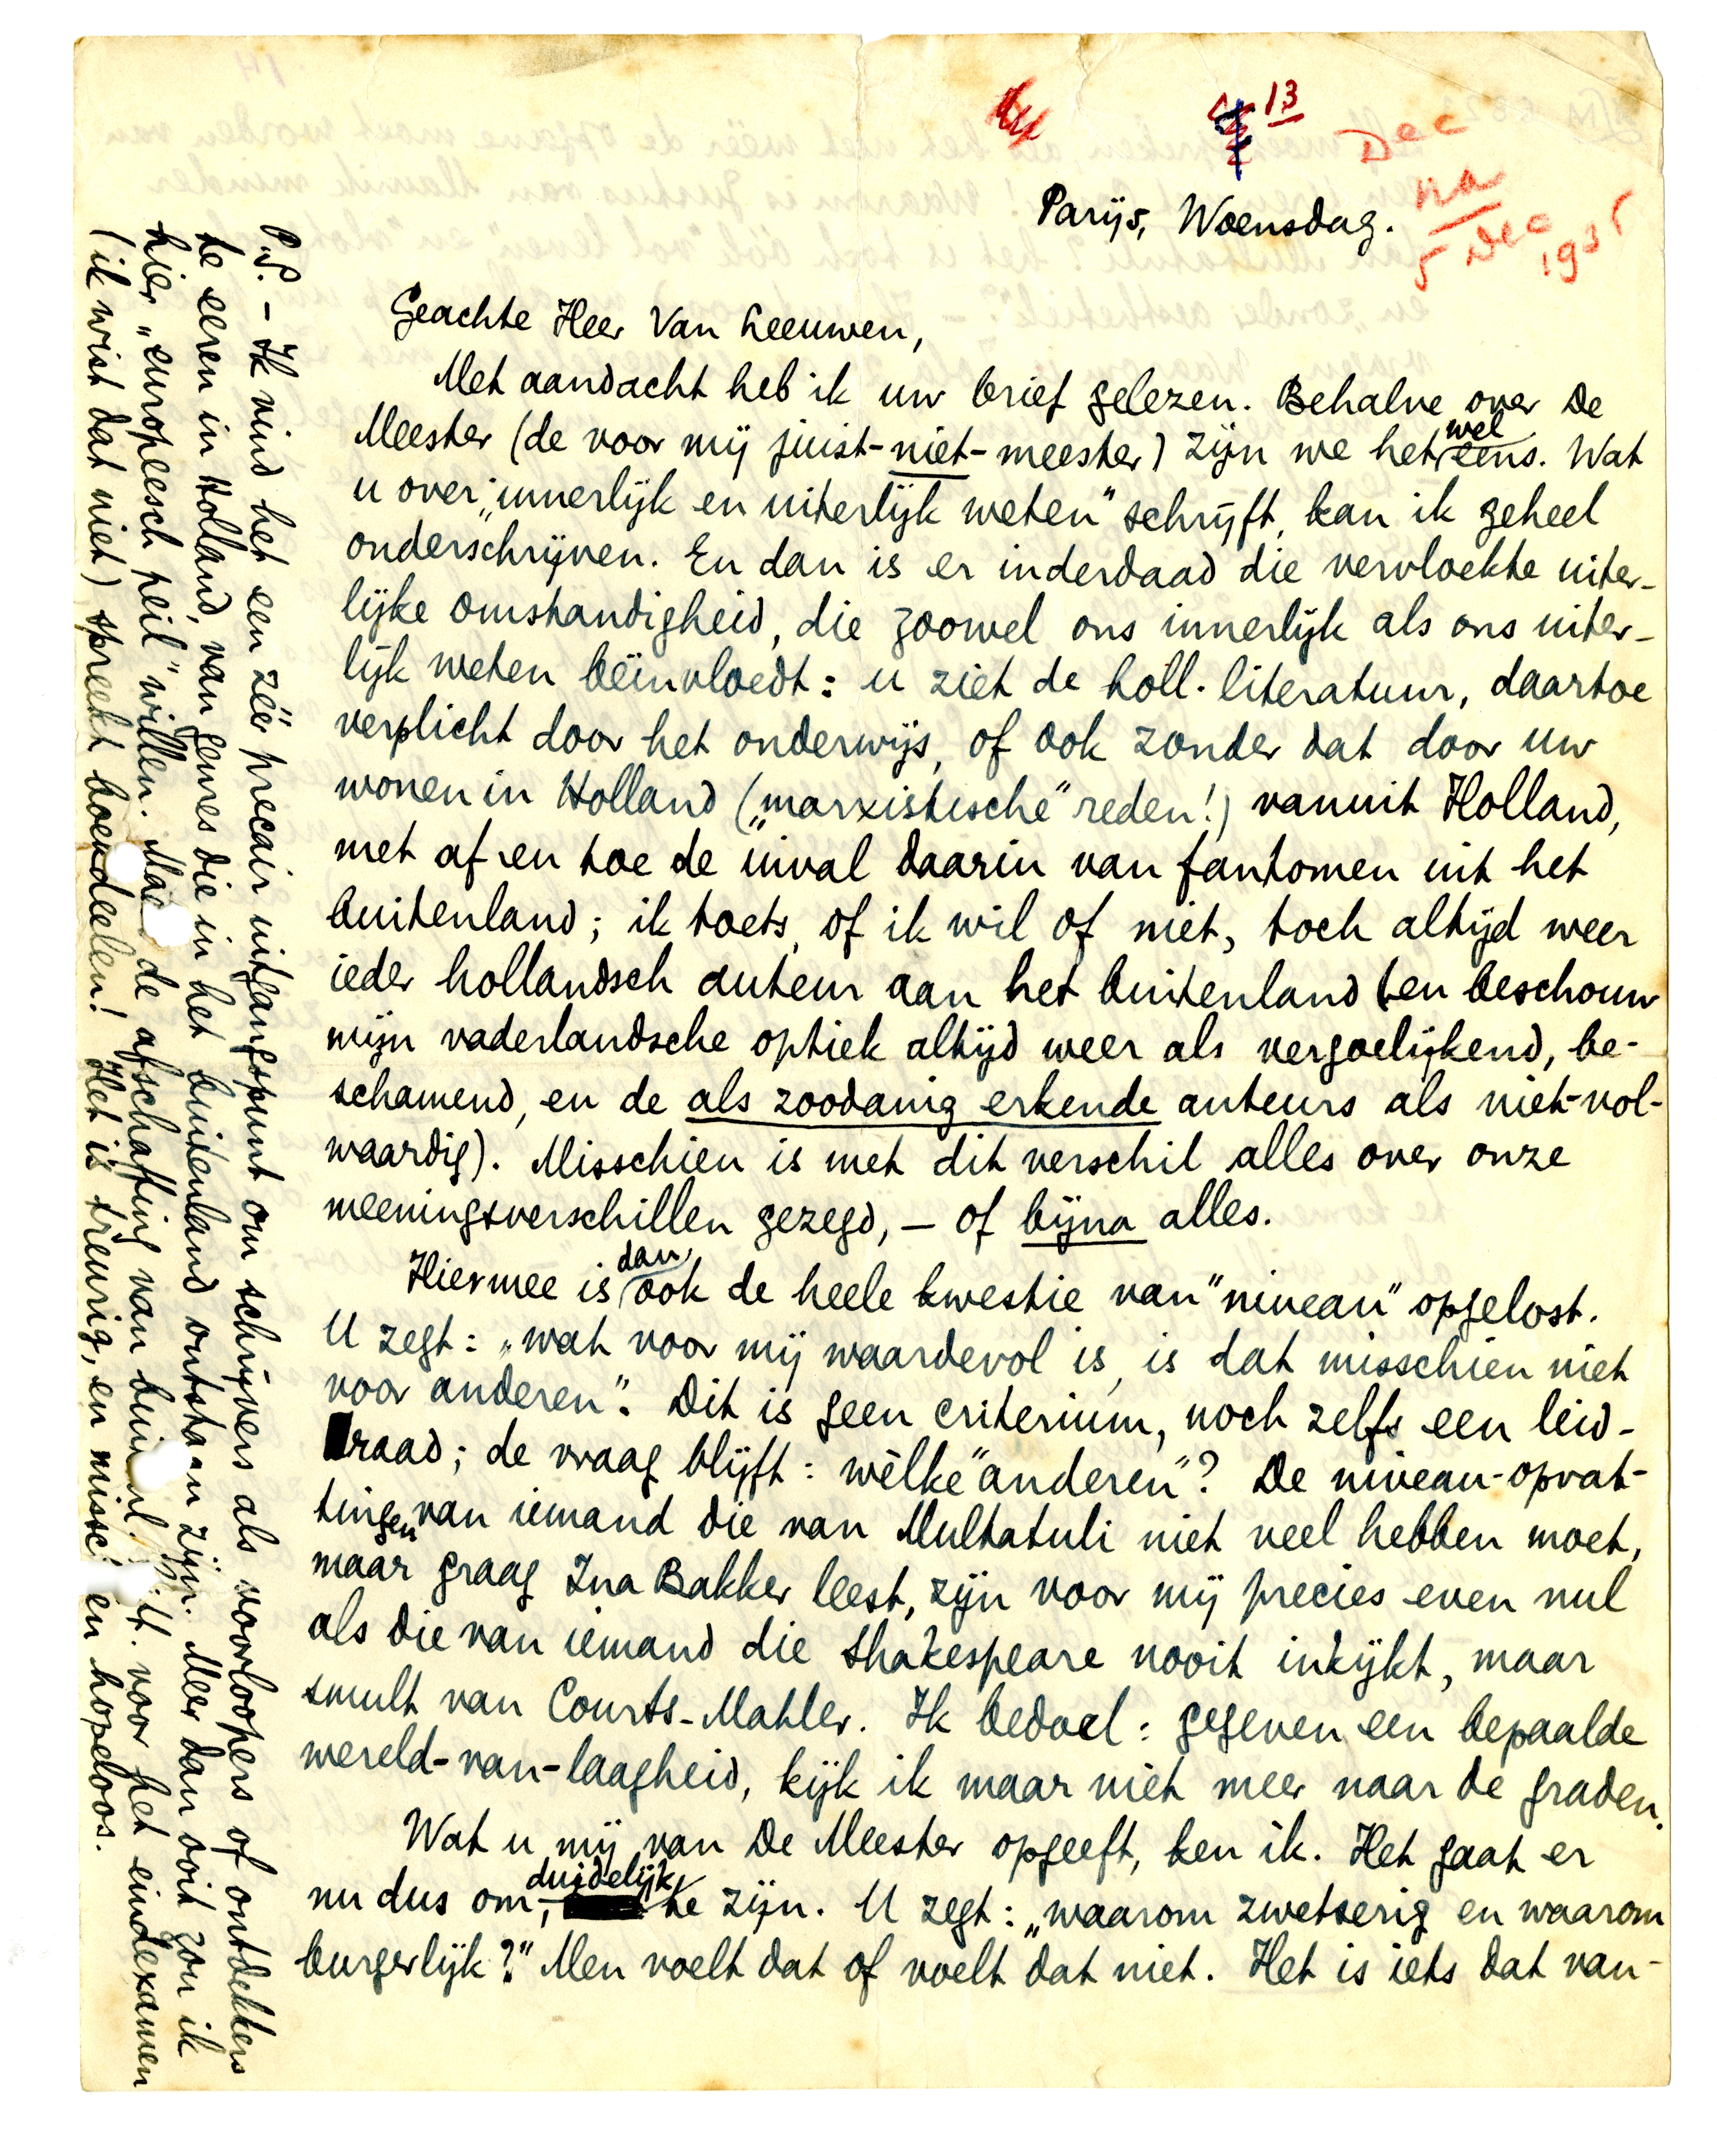 13
Dec
na
5 Dec 1935
Parijs, Woensdag.
Geachte Heer Van Leeuwen,
Met aandacht heb ik uw brief gelezen. Behalve over De
Meester (de voor mij juist-niet-meester) zijn we het wel eens. Wat
u over "innerlijk en uiterlijk weten" schrijft, kan ik geheel
onderschrijven. En dan is er inderdaad die vervloekte uiter-
lijke omstandigheid, die zoowel ons innerlijk als ons uiter-
lijk weten beïnvloedt: u ziet de holl. literatuur, daartoe
verplicht door het onderwijs, of ook zonder dat door uw
wonen in Holland („marxistische" reden!) vanuit Holland,
met af en toe de inval daarin van fantomen uit het
buitenland; ik toets, of ik wil of niet, toch altijd weer
ieder hollandsch auteur aan het buitenland (en beschouw
mijn vaderlandsche optiek altijd weer als vergoelijkend, be-
schamend, en de als zoodanig erkende auteurs als niet-vol-
waardig). Misschien is met dit verschil alles over onze
meeningsverschillen gezegd, – of bijna alles.
Hiermee is dan ook de heele kwestie van "niveau" opgelost.
U zegt: „wat voor mij waardevol is, is dat misschien niet
voor anderen". Dit is geen criterium, noch zelfs een leid-
raad; de vraag blijft: wèlke "anderen"? De niveau-opvat-
tingen van iemand die van Multatuli niet veel hebben moet,
maar graag Ina Bakker leest, zijn voor mij precies even nul
als die van iemand die Shakespeare nooit inkijkt, maar
smult van Courts-Mahler. Ik bedoel: gegeven een bepaalde
wereld-van-laagheid, kijk ik maar niet meer naar de graden.
Wat u mij van De Meester opgeeft, ken ik. Het gaat er
nu dus om, duidelijk te zijn. U zegt: „waarom zwetserig en waarom
burgerlijk?" Men voelt dat of voelt dat niet. Het is iets dat van-
P.S. – Ik vind het een zéér precair uitgangspunt om schrijvers als voorloopers of ontdekkers
te eeren in Holland, van genres die in het buitenland ontstaan zijn. Meer dan ooit zou ik
hier „europeesch peil" willen. Maar de afschaffing van buitenl. litt. voor het eindexamen
(ik wist dat niet) spreekt boekdeelen! Het is treurig, en misschien hopeloos.